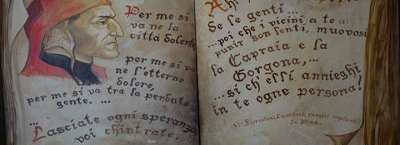 Per me si
va ne la
città dolente,
per me si va
ne l'etterno
dolore,
per me si va tra la perduta
gente. ...
...Lasciate ogni speranza
voi ch'intrate.
Ahi
de le genti...
...poi che i vicini a te
punir son lenti, muovasi
la Capraia e la
Gorgona,...
sì ch'elli annieghi
in te ogne persona!